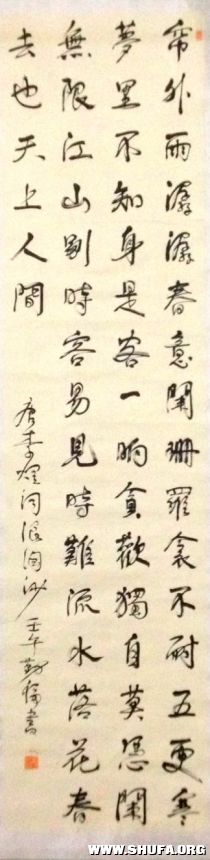 帘外雨潺潺春意闌珊羅衾不耐五更寒
夢里不知身是客一晌貪歡獨自莫憑闌
無限江山別時容易見時難流水落花春
去也天上人間
唐李煜词浪淘沙 壬午 書
WWW.SHUFA.ORG